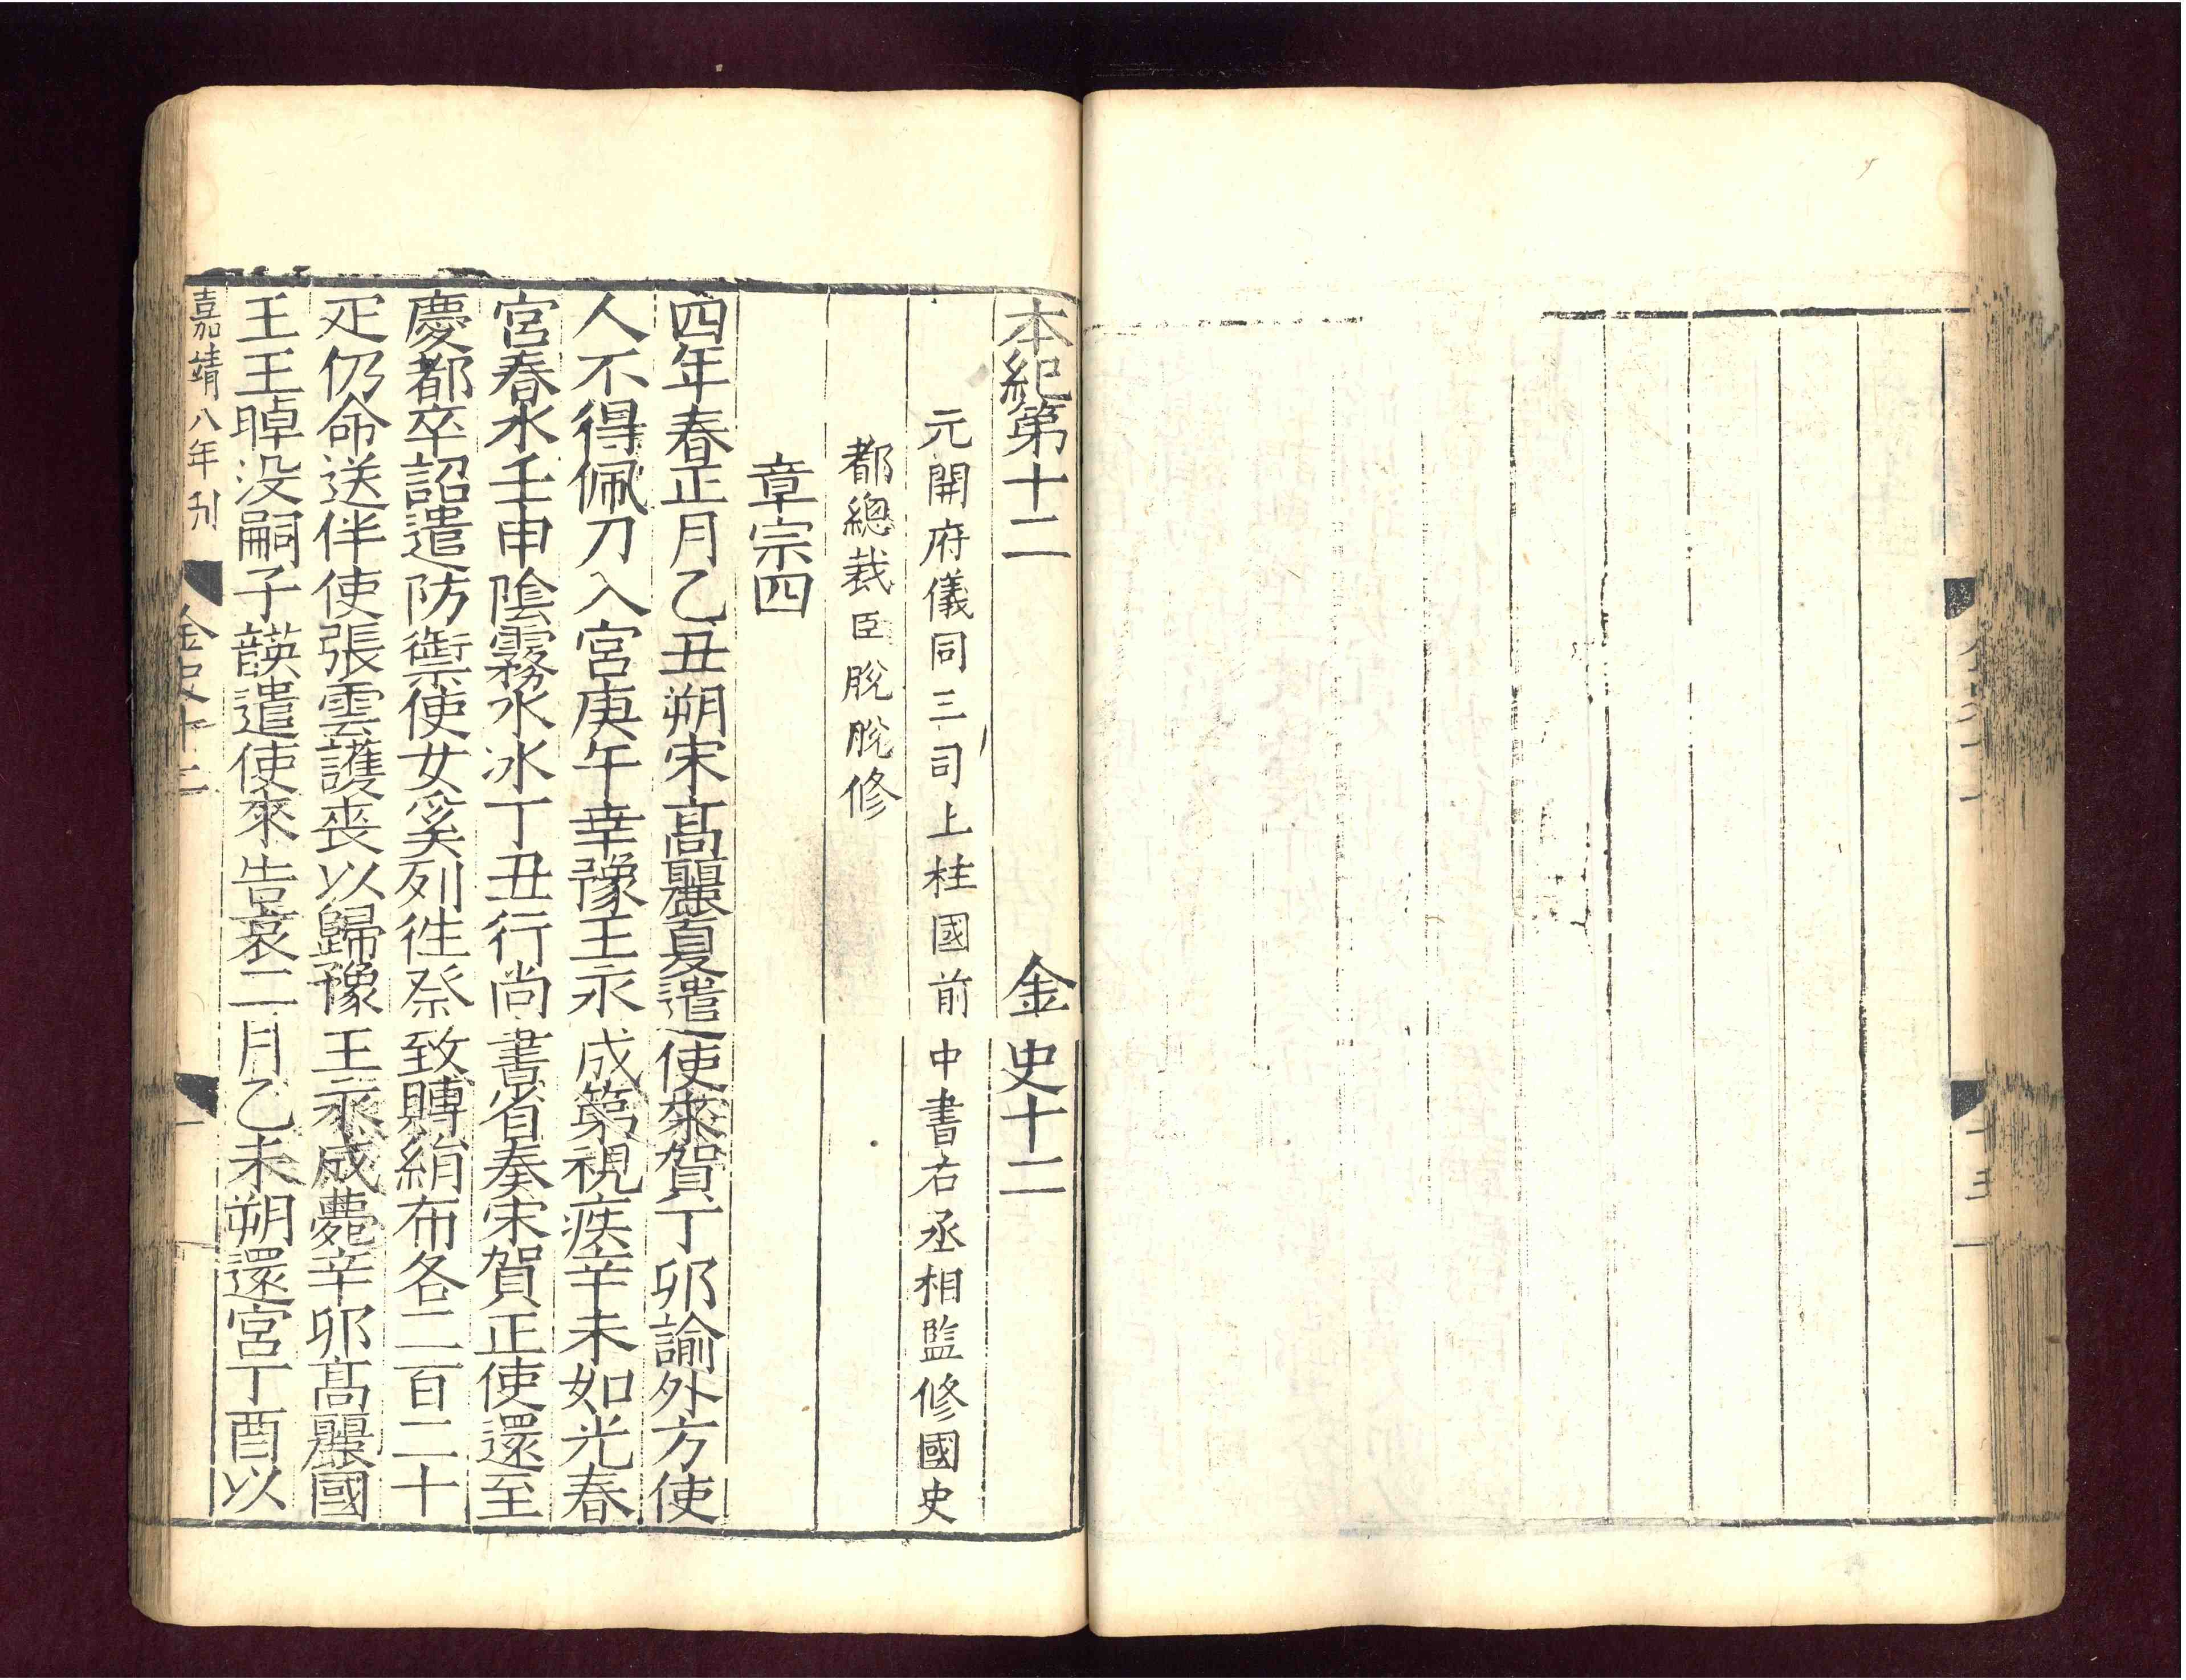 本紀第十二 金史十二
元開府儀同三司上柱國前中書右丞相監修國史
都總裁臣脫脫修
章宗四
四年春正月乙丑朔宋髙麗夏遣使來賀丁卯諭外方使
人不得佩刀入宮庚午幸豫王永成第視疾辛未如光春
宮春水壬申陰霧水冰丁丑行尚書省奏宋賀正使還至
慶都卒詔遣防禦使女奚列徃祭致賻絹布各二百二十
疋仍命送伴使張雲護喪以歸豫王永成薨辛卯髙麗國
王王晫没嗣子韺遣使來告哀二月乙未朔還宮丁酉以
嘉靖八年刋
金史十二
一